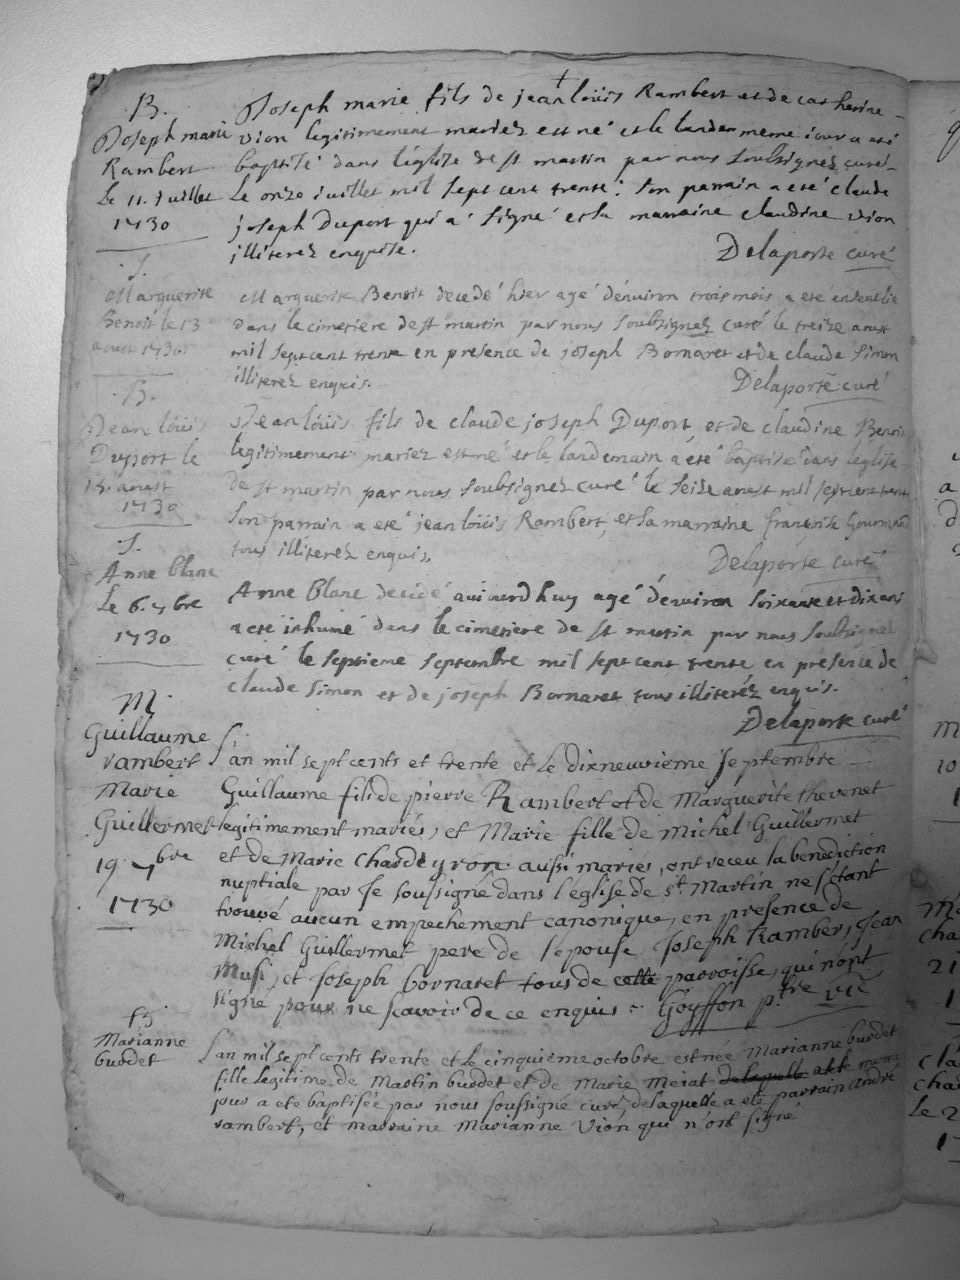 B.
Joseph marie
Rambert
Le 11. Juillet
1730
Joseph marie fils de jean loüis Rambert et de catherine
vion legitimement mariez est né et le landemain meme iour a eté
baptisé dans léglise de st martin par nous soubsignez curé
Le onze iuillet mil sept cent trente: son parrain a eté claude
joseph Duport qui a signé et sa marraine claudine vion
jlliterez enquise.
Delaporte curé
S.
Marguerite
Benoit le 13
aoust 1730
Marguerite Benoit decedé hier agé dénviron trois mois a eté enseuelie
dans le cimetiere de st martin par nous soubsignez curé le treize aoust
mil sept cent trente en presence de joseph Bornaret et de claude simon
illiterez enquis.
Delaporte curé
B.
Jean loüis
Duport le
aoust
1730
Jean loüis fils de claude joseph Duport et de claudine Benoit
legitimement mariez est né et le landemain a eté baptisé dans léglise
de st martin par nous soubsignez curé le seize aoust mil sept cent trente
son parrain a eté jean loüis Rambert, et sa marraine françoise
tous illiterez enquis,
Delaporte curé
S.
Anne blanc
Le 6. 7bre
1730
Anne blanc decedé auiourdhuy agé dénviron soixante et dix ans
a eté inhumé dans le cimetiere de st martin par nous soubsignez
curé le septieme septembre mil sept cent trente en presence de
claude simon et de joseph Bornaret tous illiteréz enquis.
Delaporte curé
M.
Guillaume
rambert
Marie
Guillermet
19. 7bre
1730
L'an mil sept cents et trente et Le dixneuvieme septembre
Guillaume fils de pierre Rambert et de Marguerite thevenet
legitimement mariés, et Marie fille de Michel Guillermet
et de Marie Chardeyron aussi mariés, ont receu la benediction
nuptiale par Je soussigné dans l'église de st Martin ne s'étant
trouvé aucun empechement canonique, en presence de
Michel Guillermet pere de l'epouse Joseph Rambert, Jean
Musi, et Joseph bornaret tous de cette parroisse, qui n'ont
signé pour ne scavoir de ce enquis. Goyffon ptre vic
B
Marianne
burdet
L'an mil sept cents trente et le cinquieme octobre est née Marianne burdet
fille legitime de Martin burdet et de Marie Meiat delaquelle meme
jour a ete baptisée par nous soussigné curé, delaquelle a eté parrain andré
rambert, et marraine Marianne Vion qui n'ont signé